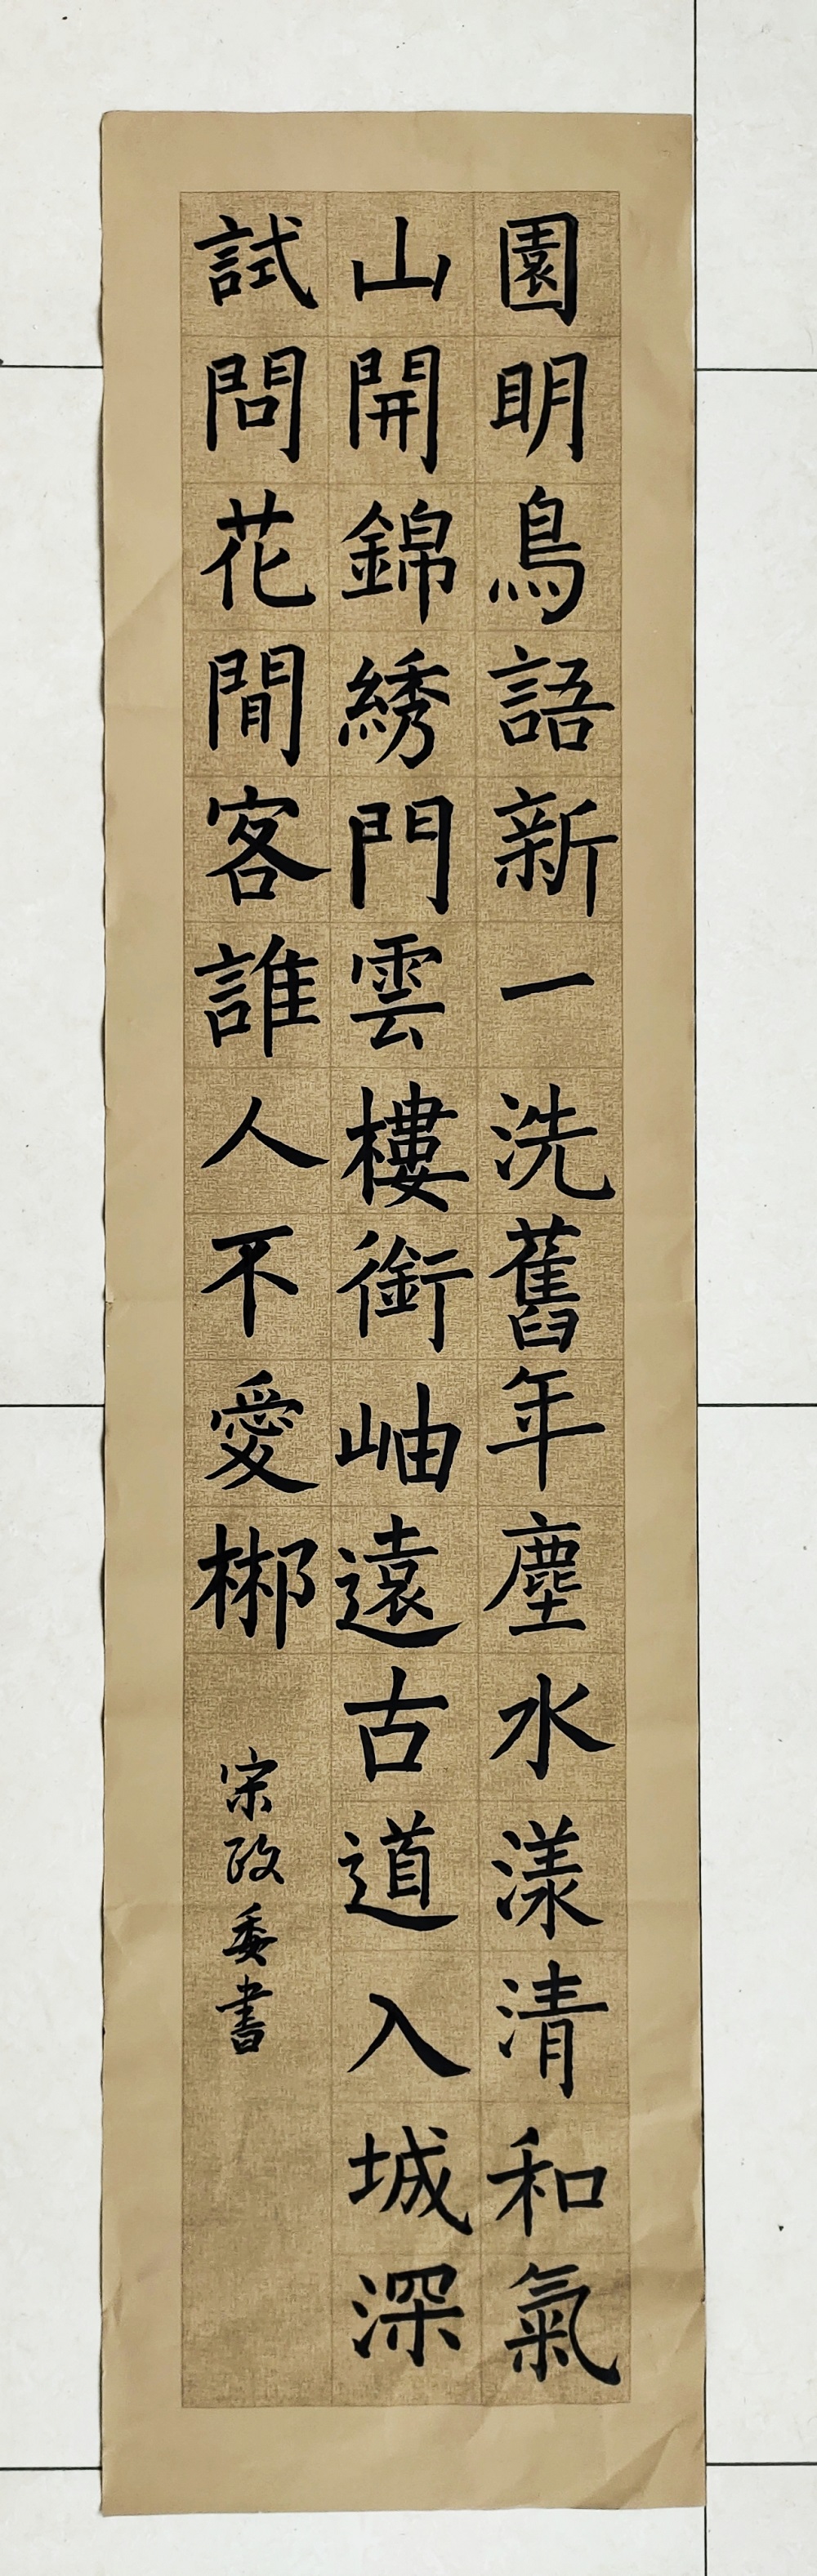 園明鳥語新一洗舊年塵水漾清和氣
山開錦綉門雲樓銜岫遠古道入城深
試問花間客誰人不愛郴
宗政委書